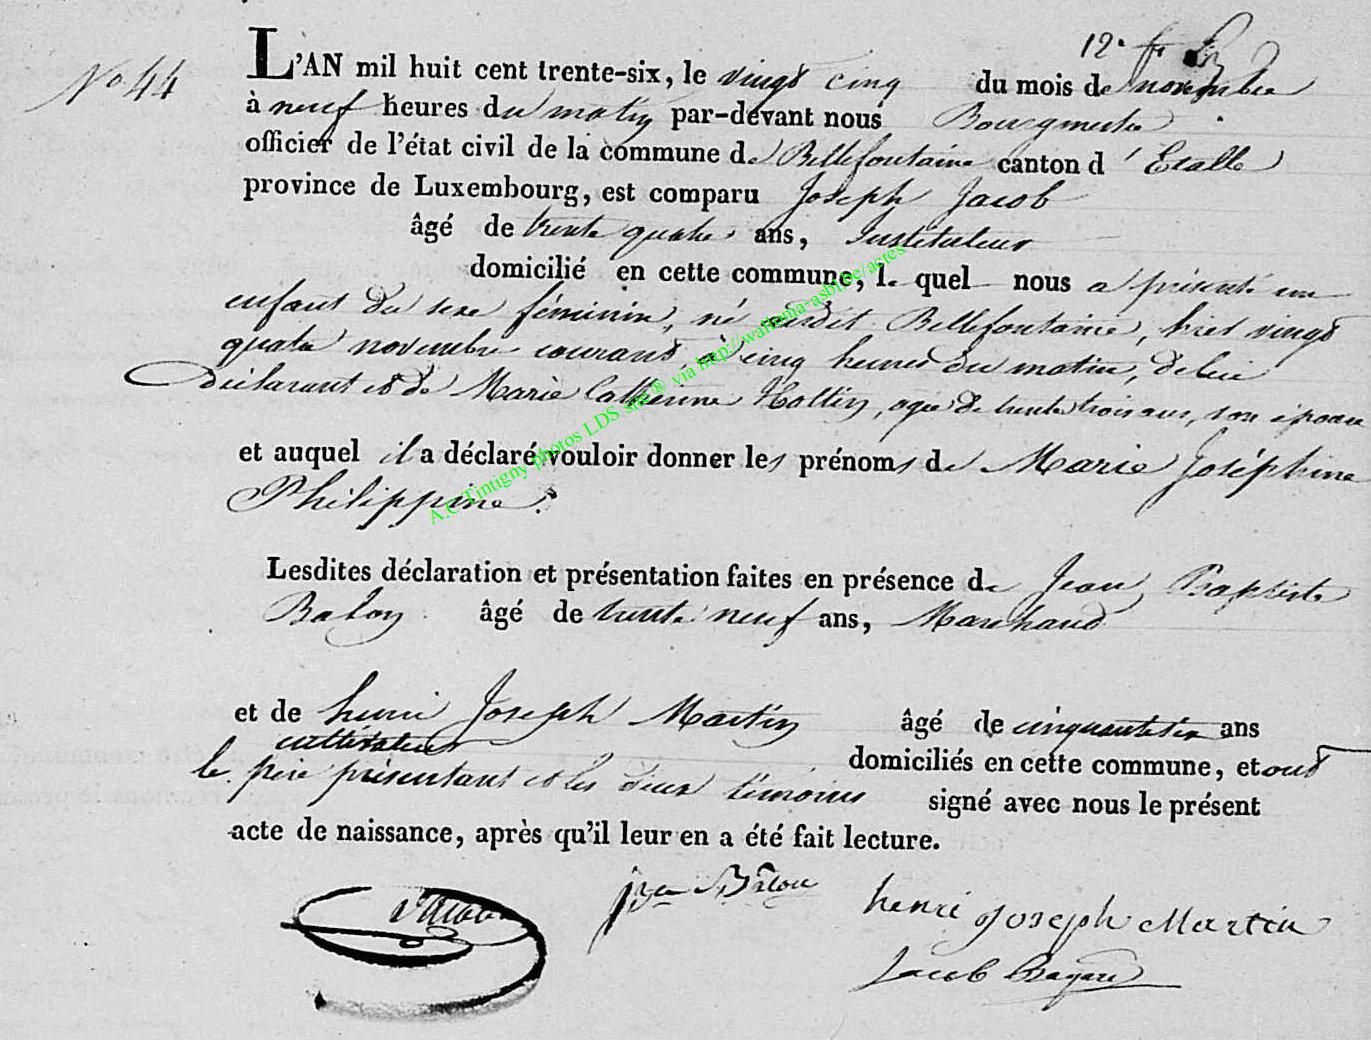 12.
No 44
L'AN mil huit cent trente-six, le vingt cinq du mois de novembre
à neuf heures du matin par-devant nous Bourgmestre
officier de l'état civil de la commune de Bellefontaine canton d'Etalle
province de Luxembourg, est comparu Joseph Jacob
âgé de trente quatre ans, Instituteur
domicilié en cette commune, le quel nous a présenté un
enfant du sexe féminin, né audit Bellefontaine, hier vingt
quatre novembre courant, à cinq heures du matin, de lui
Déclarant et de Marie Catherine Hottin, agée de trente trois ans, son épouse
et auquel il a déclaré vouloir donner les prénoms de Marie Joséphine
Philippine.
Lesdites déclaration et présentation faites en présence de Jean Baptiste
âgé de trente neuf ans, Marchand
et de henri Joseph Martin âgé de cinquante six ans
cultivateur domiciliés en cette commune, et ont
le père présentant et les deux témoins signé avec nous le présent
acte de naissance, après qu'il leur en a été fait lecture.
Jacob
henri Joseph Martin
Jacob
A.C Tintigny photos LDS site® via http://wallonia-asbl.be/actes